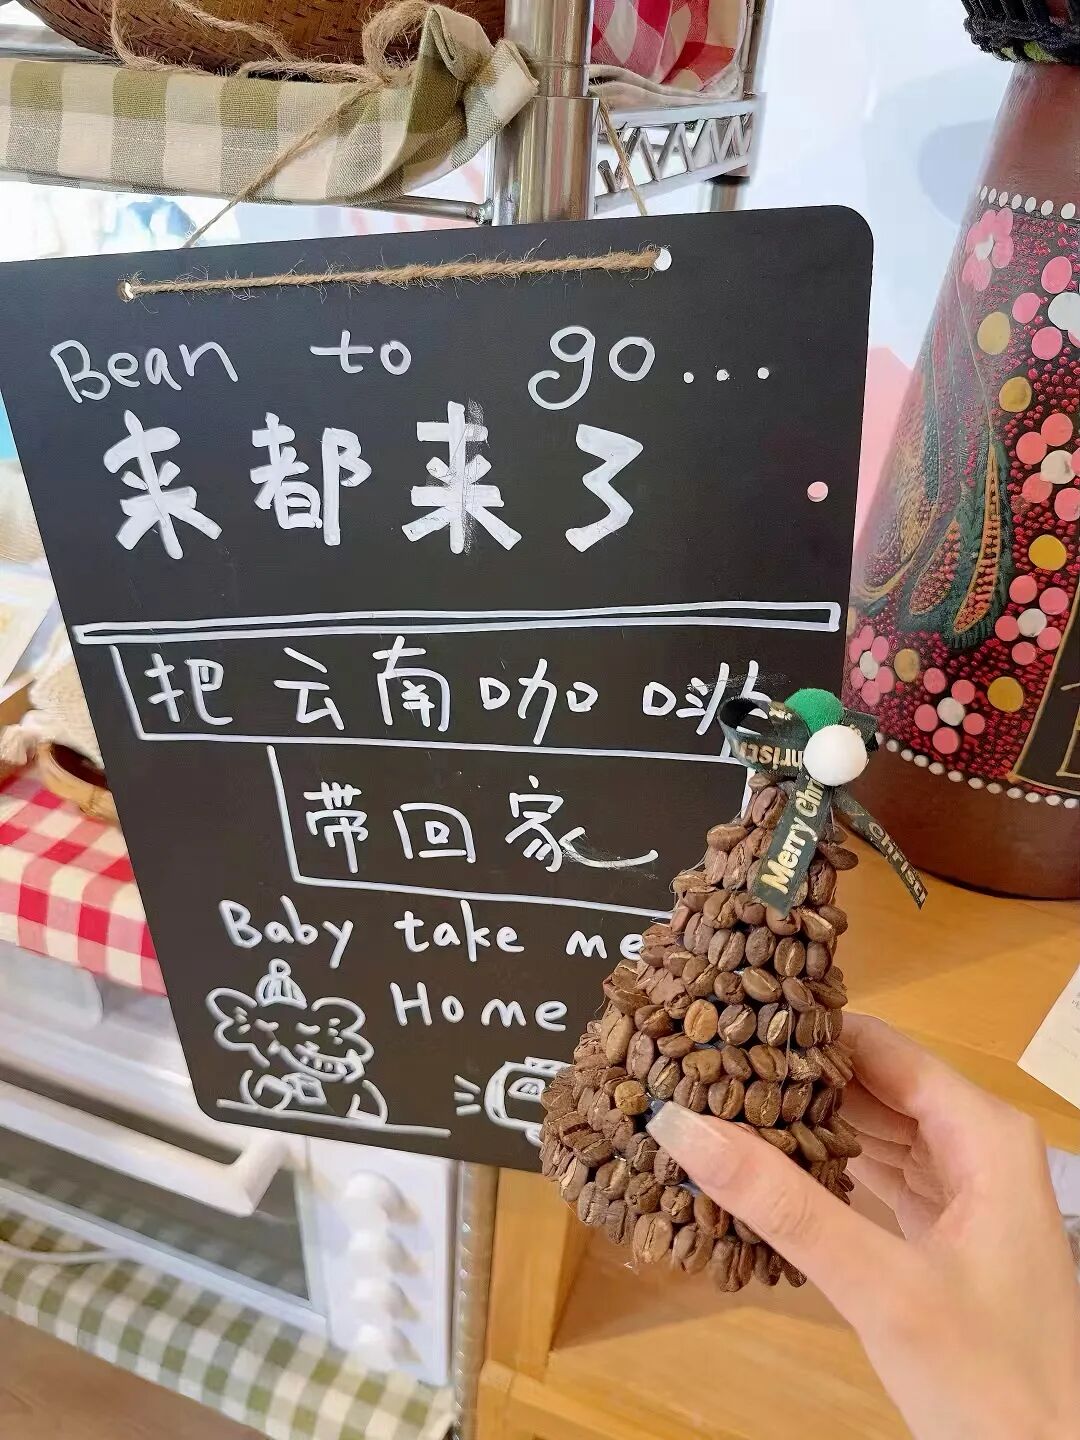 Bean to go...
来都来了
把云南咖啡
带回家
Baby take me
Home
Merry Chr
Christ
CHRIST